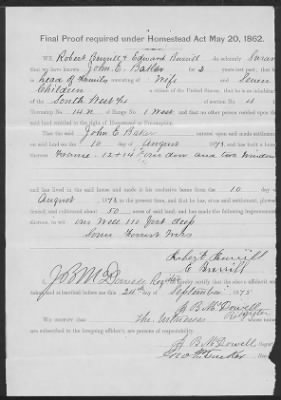 Final Proof required under Homestead Act May 20, 1862.
We, Robert Burrill & Edward Burrill do solemnly Swear
that we have known John E. Baker for 2 years last past; that he
is head of Family consisting of Wife and Seven
Children a citizen of the United States; that he is an inhabitant
of the South West 1/4 of section No. 18
Township 14 N of Range No. 1 West and that no other person resided upon the
said land entitled to the right of Homestead or Pre-emption.
That the said John E. Baker entered upon and made settlement
on said land on the 10 day of August 187 and has built a house
thereon Frame 12 + 14 one door and two windows
and has lived in the said house and made it his exclusive home from the 10 day of
August 187 to the present time, and that he has, since said settlement, plowed,
fenced, and cultivated about 50 acres of said land, and has made the following improvements
thereon, to wit: one Well 110 feet deep
Some Forest Trees
Robert Burrill
E Burrill
I, J B McDowell, Register do hereby certify that the above affidavit was
subscribed before me this 24th day of September 187
J. B. McDowell
Register
We certify that The Witnesses whose names
are subscribed to the foregoing affidavit, are persons of respectability.
J B McDowell, Register